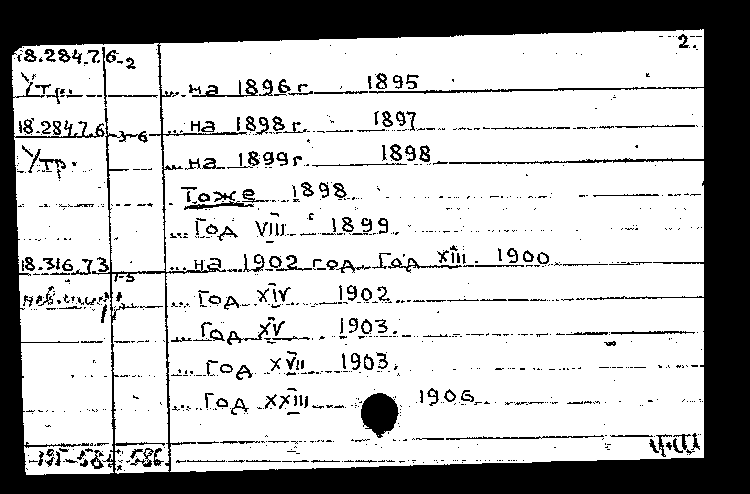 2.
18.284.7.6-2
Утр. ... на 1896 г. 1895
18.284.7.6-3-6 ... на 1898 г. 1897
Утр. ... на 1899 г. 1898
Тоже 1898
... Год VIII 1899
18.316.7.3 1-5 ... на 1902 год. Год XIII. 1900
... Год XIV 1902
... Год XV 1903.
... Год XVII 1903.
... Год XXIII 1906